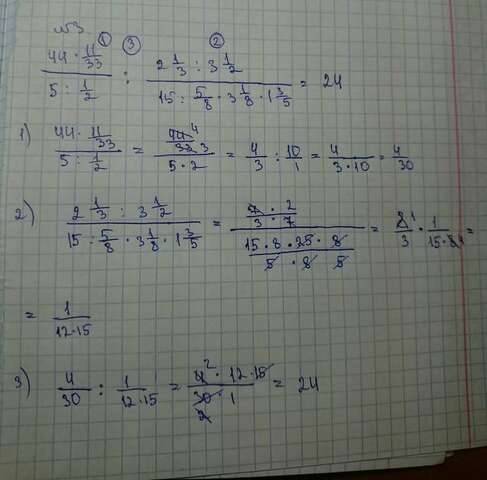 №3
① ③ ②
(44 · 11/33)/(5 : 1/2) : (2 1/3 : 3 1/2)/(15 : 5/8 · 3 1/8 · 1 3/5) = 24
1) (44 · 11/33)/(5 : 1/2) = (44 4/33 3)/(5 · 2) = 4/3 : 10/1 = 4/(3 · 10) = 4/30
2) (2 1/3 : 3 1/2)/(15 : 5/8 · 3 1/8 · 1 3/5) = ((7 · 2)/(3 · 7))/((15 · 8 · 25 · 8)/(5 · 8 · 5)) = 2 1/3 · 1/(15 · 8 4) =
= 1/(12·15)
3) 4/30 : 1/(12·15) = (4 2 · 12 · 15)/(30 2 · 1) = 24